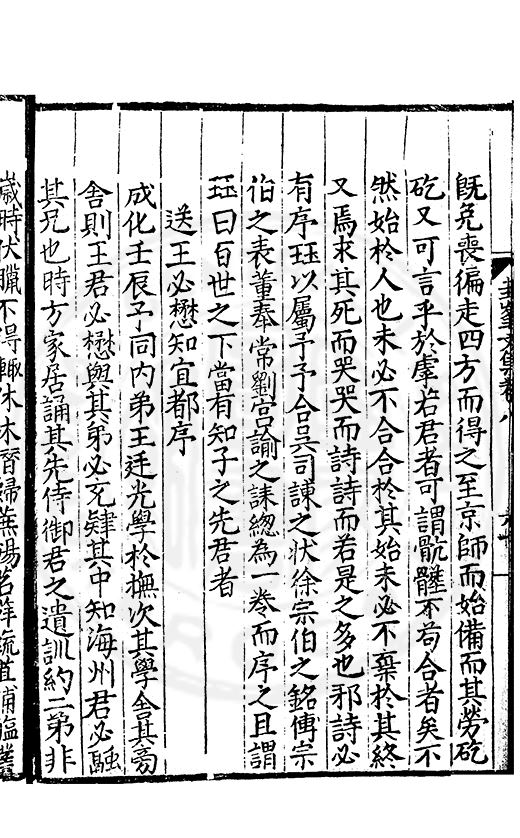 既免喪徧走四方而得之至京師而始備而其勞矻
矻又可言乎於虖若君者可謂骯髒不苟合者矣不
然始於人也未必不合合於其始未必不棄於其終
又焉求其死而哭哭而詩詩而若是之多也邪詩必
有序珏以屬予予合吳司諫之狀徐宗伯之銘傳宗
伯之表董奉常劉宫諭之誄緫為一卷而序之且謂
珏曰百世之下當有知子之先君者
送王必懋知宜都序
成化壬辰予同内弟王廷光學於撫次其學舍其旁
舍則王君必懋與其弟必充肄其中知海州君必融
其兄也時方家居誦其先侍御君之遺訓約二弟非
歲時伏臘不得輙休木